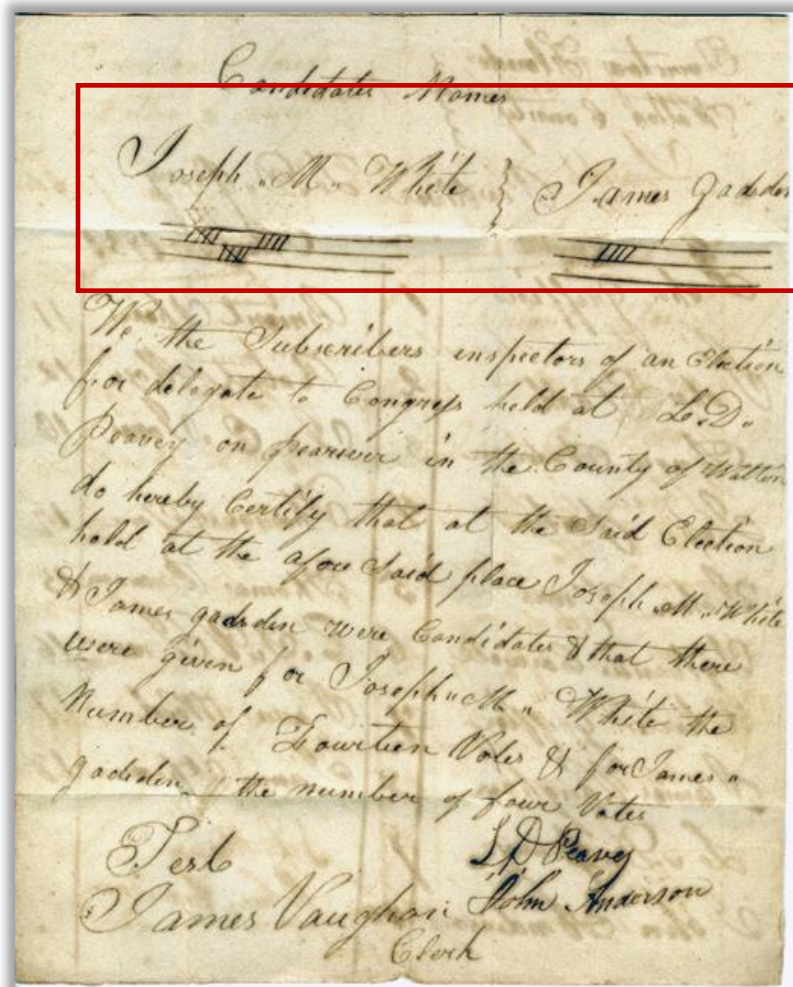 Candidates Names
Joseph " M " White } James Gadsden
We the Subscribers inspectors of an Election
for delegate to Congress held at L. D.
Peavey on pearriver in the County of Walton
do hereby Certify that at the Said Election
held at the afore Said place Joseph " M " White
& James gadsden were Candidates & that there
were given for Joseph " M " White the
Number of Fourteen Votes & for James "
gadsden the number of four Votes
Test L D Peavey
James Vaughan John Anderson
Clerk